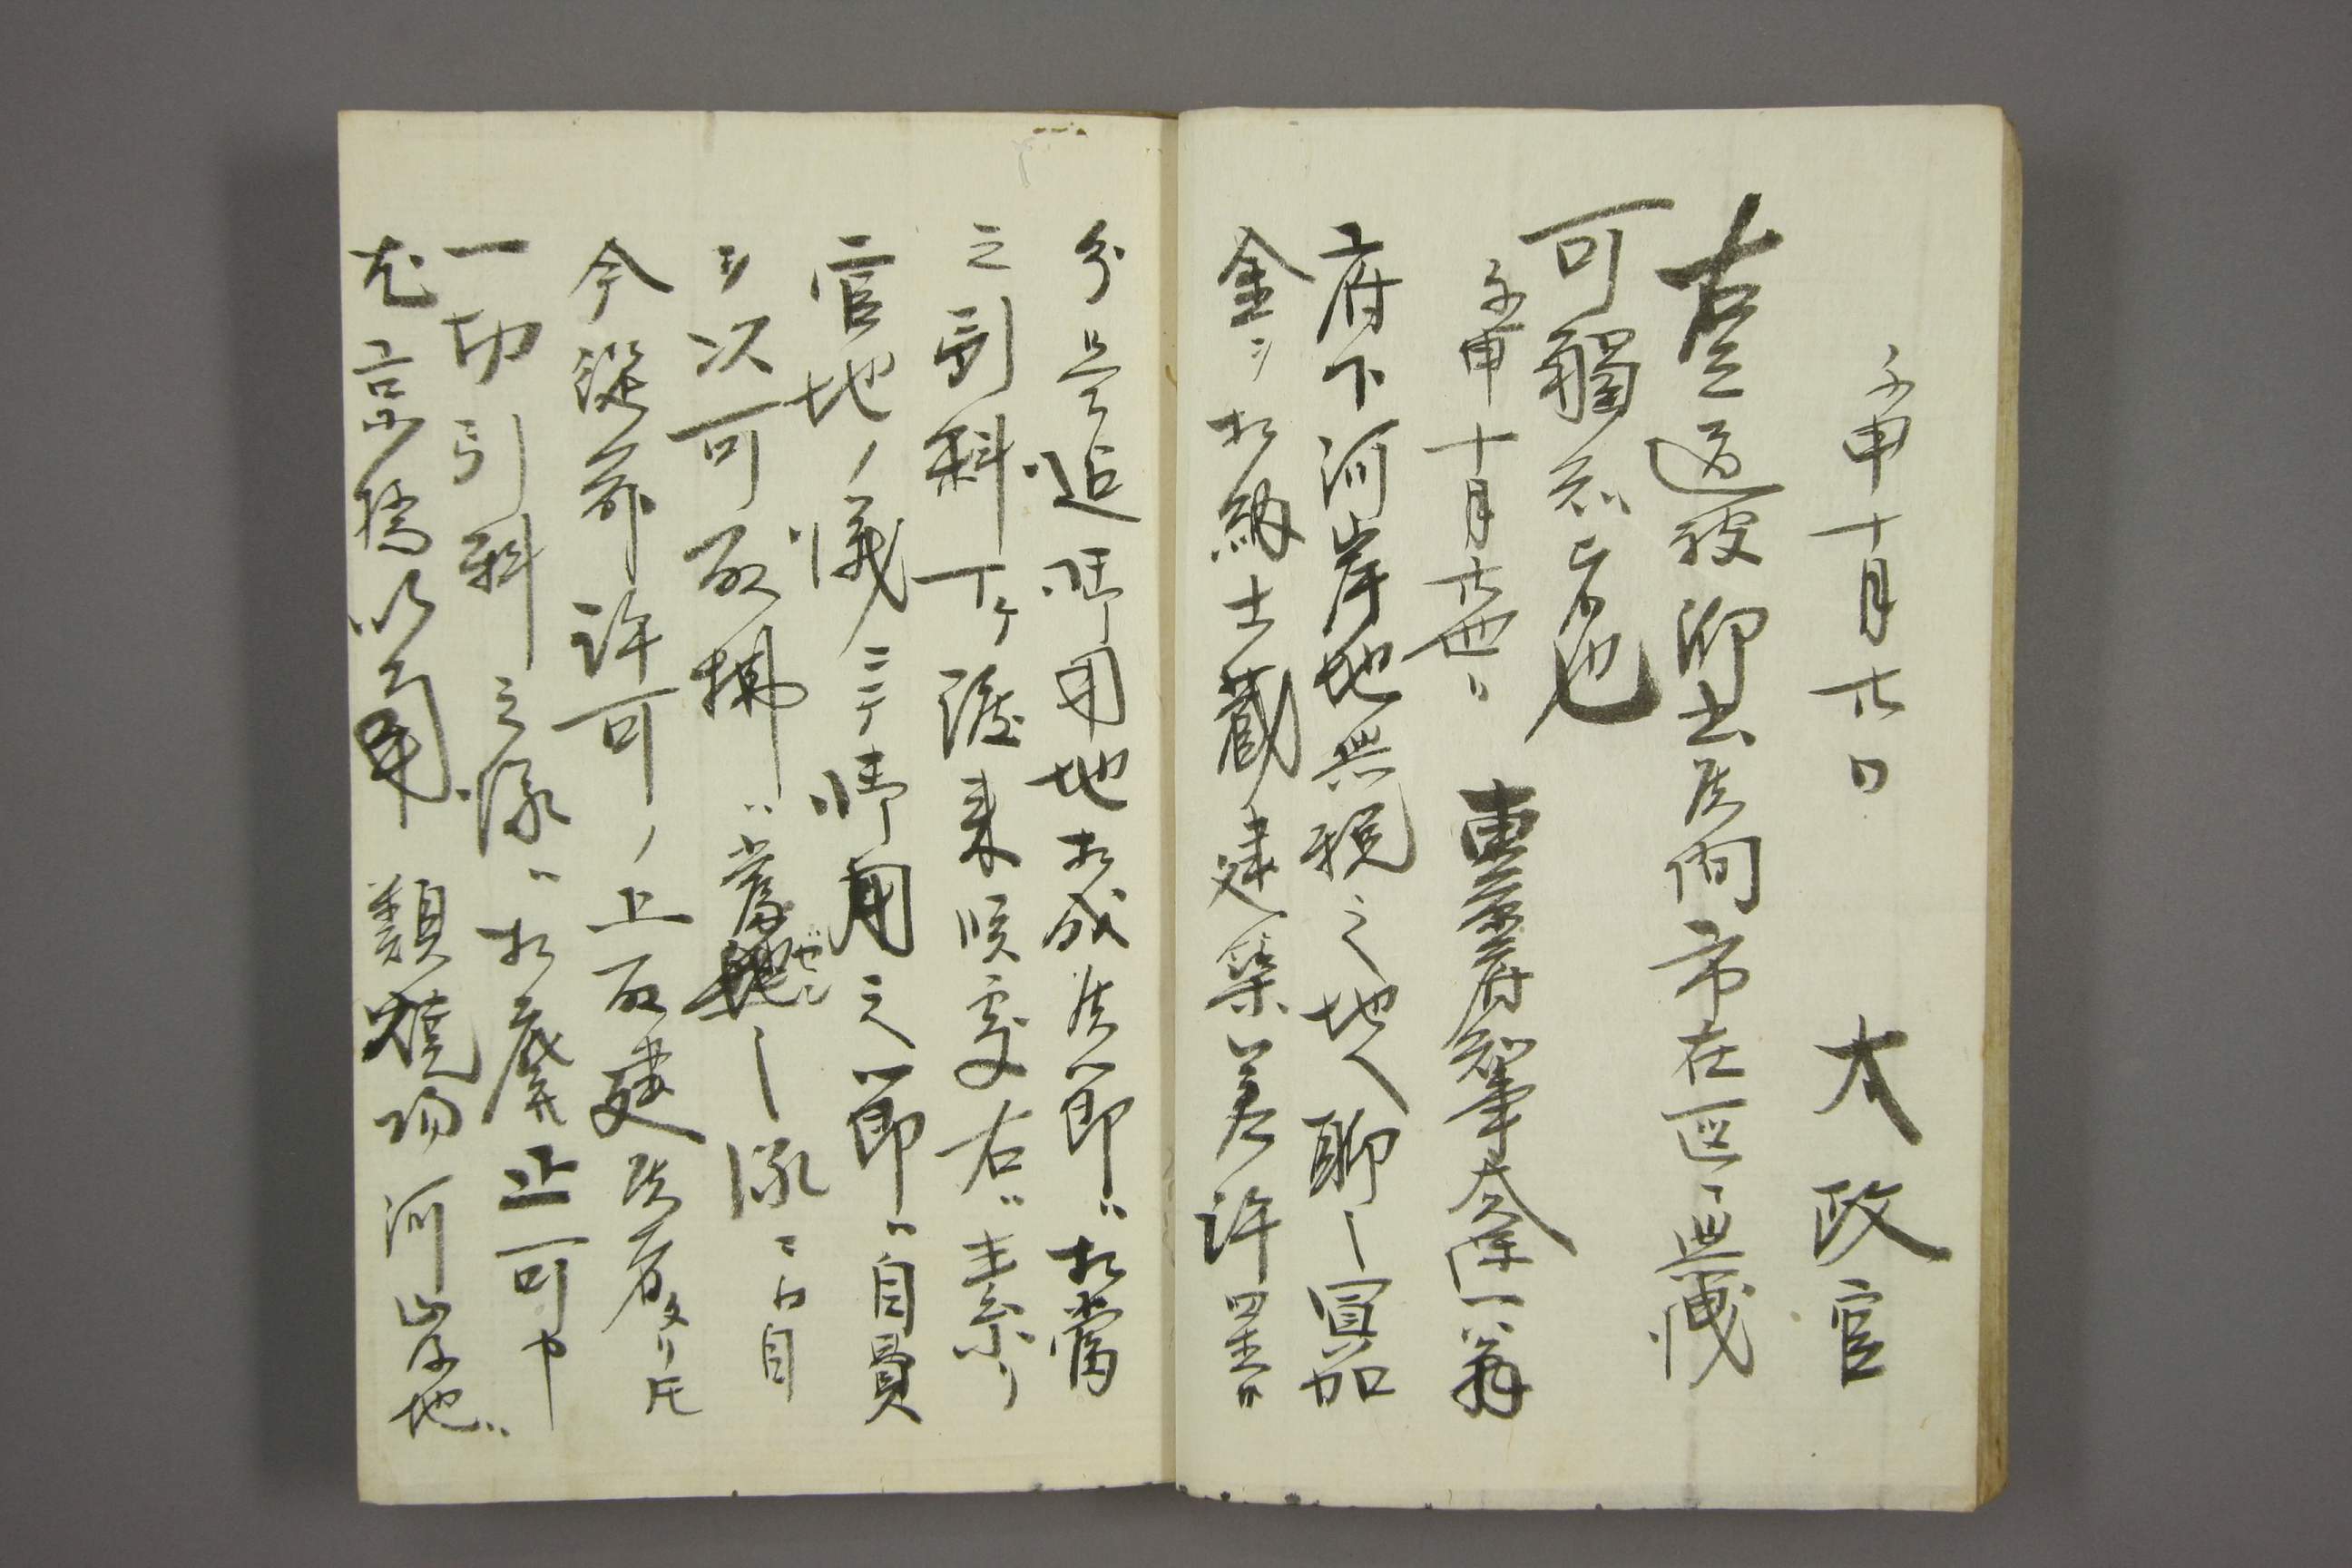 壬申十月廿日
太政官
右之通被仰出候間市在区々無洩
可觸知もの也
壬申十月廿四日 東京府知事大久保一翁
府下河岸地無税之地へ聊ノ冥加
金ヲ相納土蔵建築差許置候
分是迠御用地相成候節ハ相當
之引料丁ケ渡来候處右ハ素ゟ
官地ノ儀ニテ御用之節ハ自費
ヲ以可取拂ハ當然ノ儀ニ付自
今従前許可ノ上取建候者タリ圧
一切引料之儀ハ相廃止可申
尤京橋以南類焼場河岸地ハ